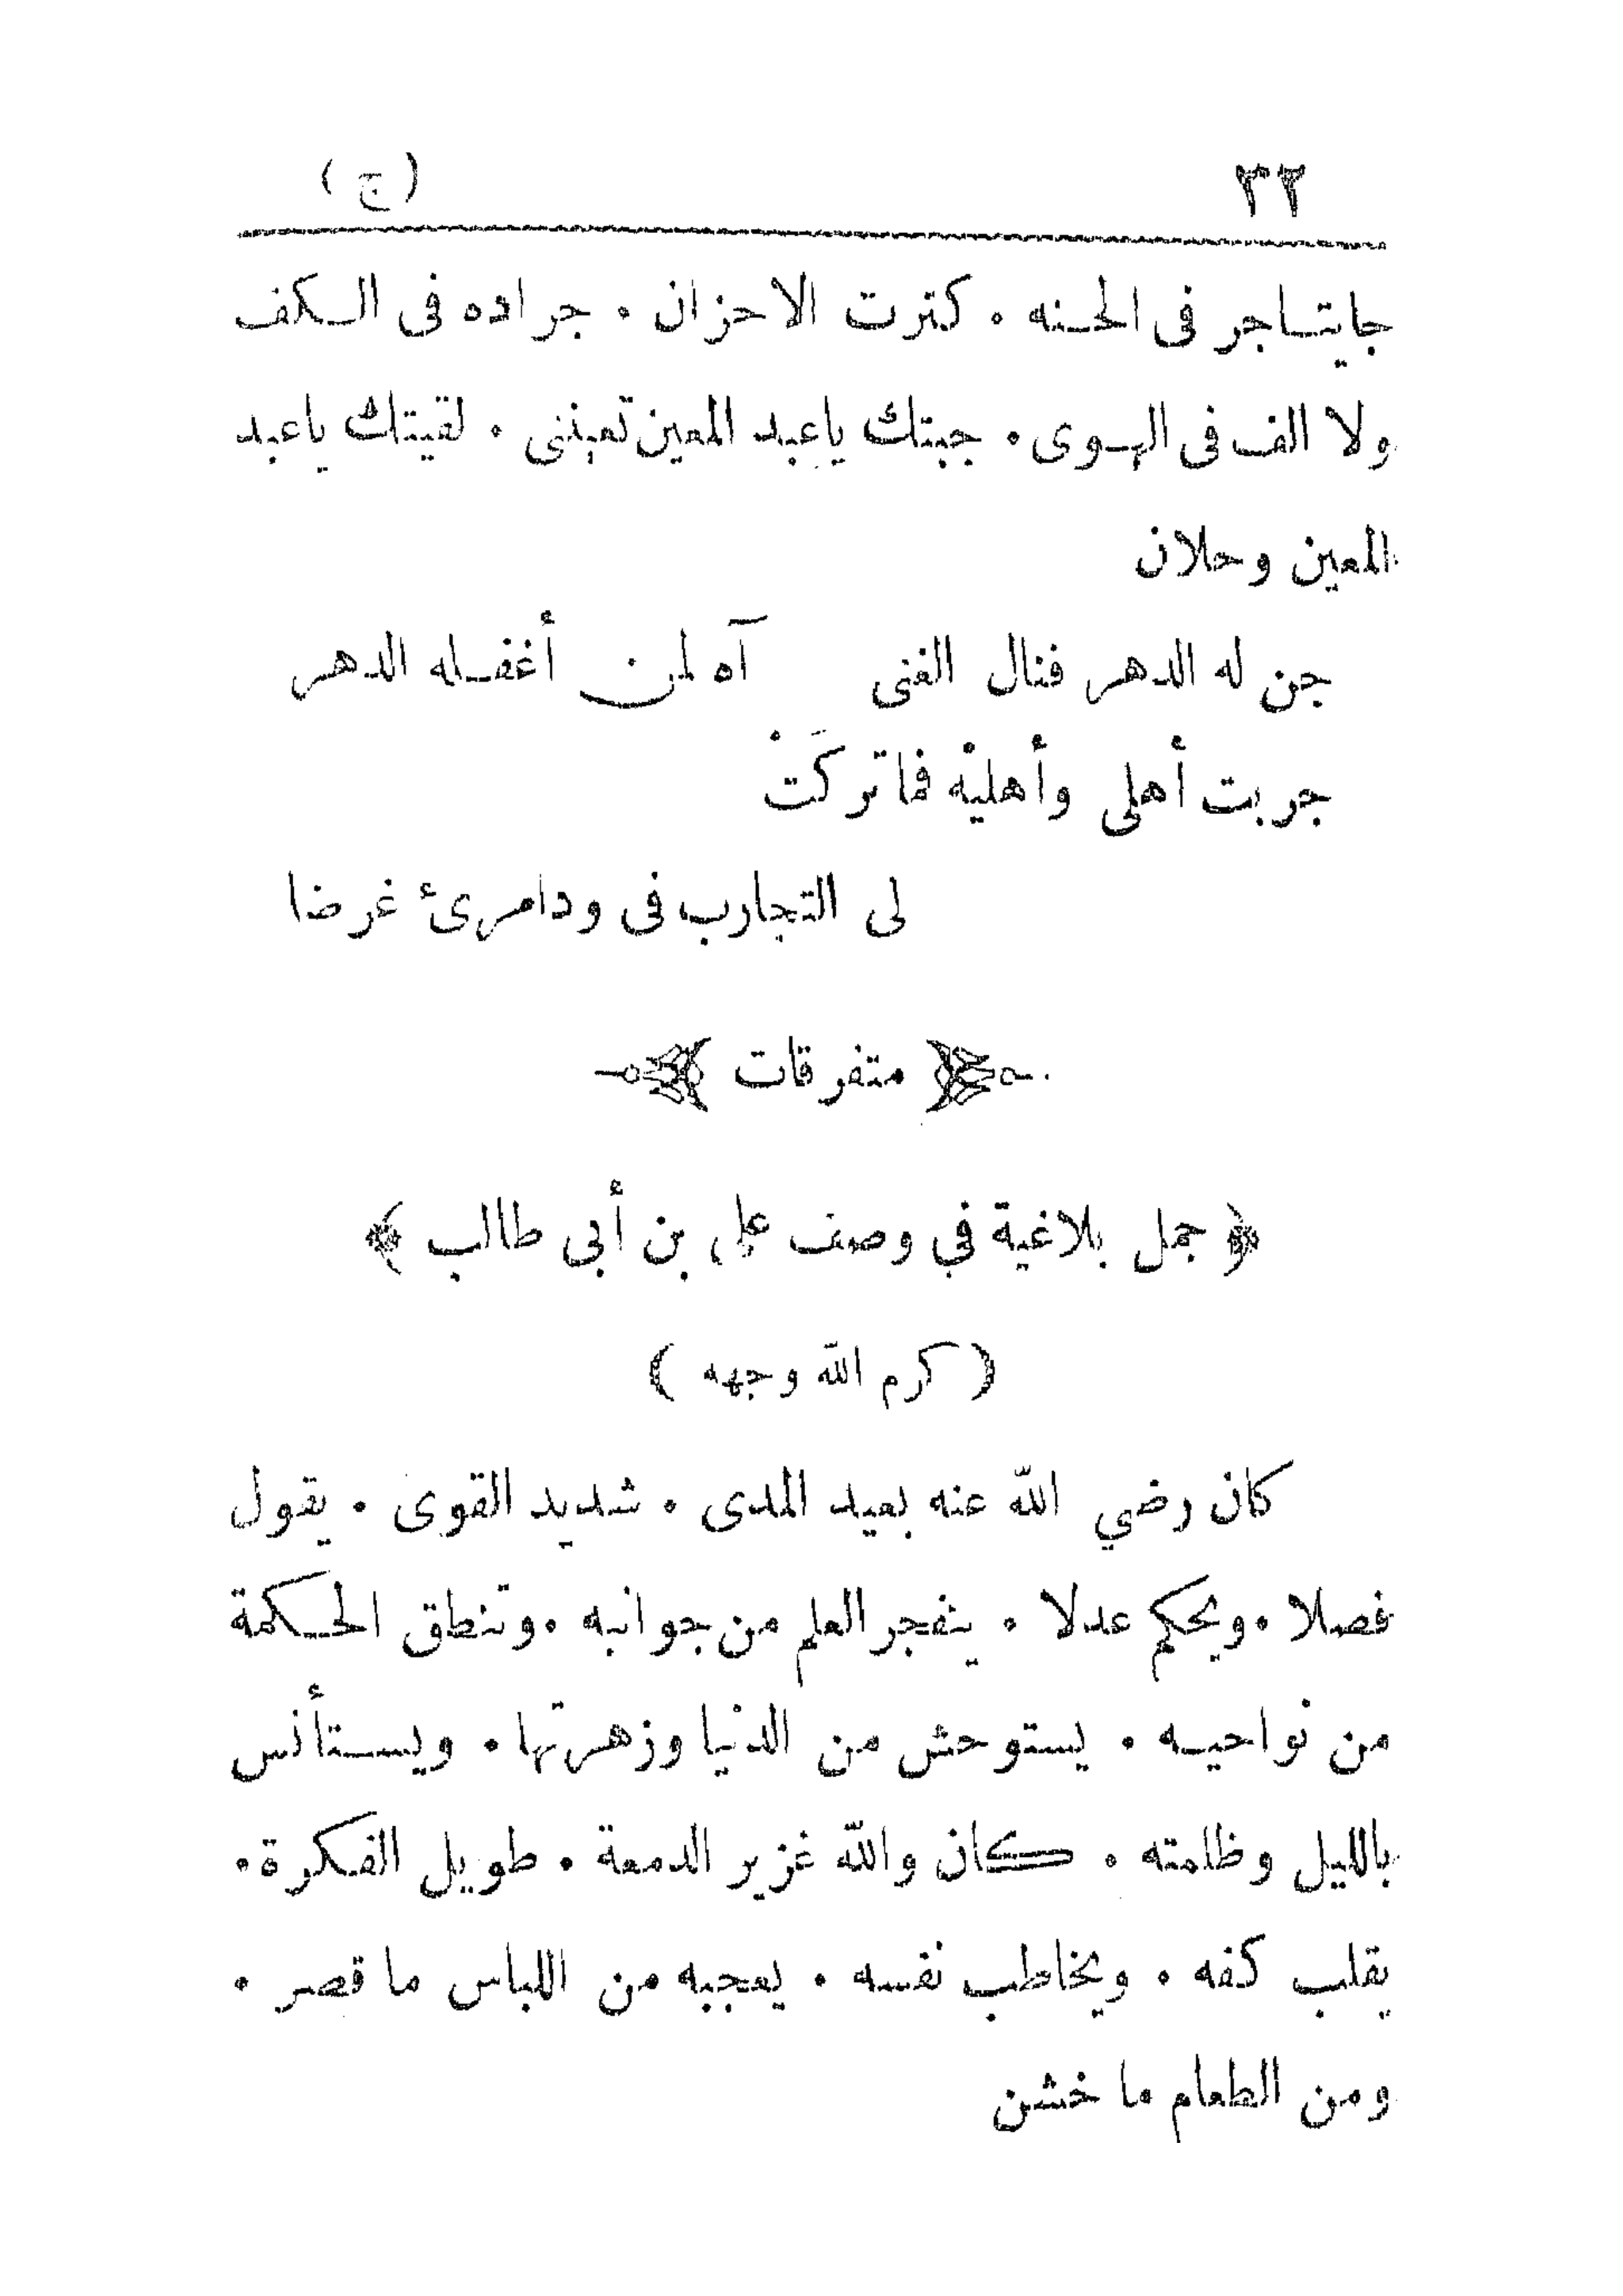 ٣٢ (ج)
جايتاجر فى الحنه ٠ كترت الاحزان ٠ جراده فى الكف
ولا الف فى الهوى ٠ جبتك ياعبد المعين تعينى ٠ لقيتك ياعبد
المعين وحلان
جن له الدهر فنال الغنى آه لمن أغفله الدهر
جربت أهلى وأهليْه فما تركَتْ
لى التجارب فى ود امرئ غرضا
متفرقات
﴿ جمل بلاغية في وصف على بن أبى طالب ﴾
( كرم الله وجهه )
كان رضي الله عنه بعيد المدى ٠ شديد القوى ٠ يقول
فصلا ٠ ويحكم عدلا ٠ يتفجر العلم من جوانبه ٠ وتنطق الحكمة
من نواحيه ٠ يستوحش من الدنيا وزهرتها ٠ ويستأنس
بالليل وظلمته ٠ كان والله غزير الدمعة ٠ طويل الفكرة ٠
يقلب كفه ٠ ويخاطب نفسه ٠ يعجبه من اللباس ما قصر ٠
ومن الطعام ما خشن